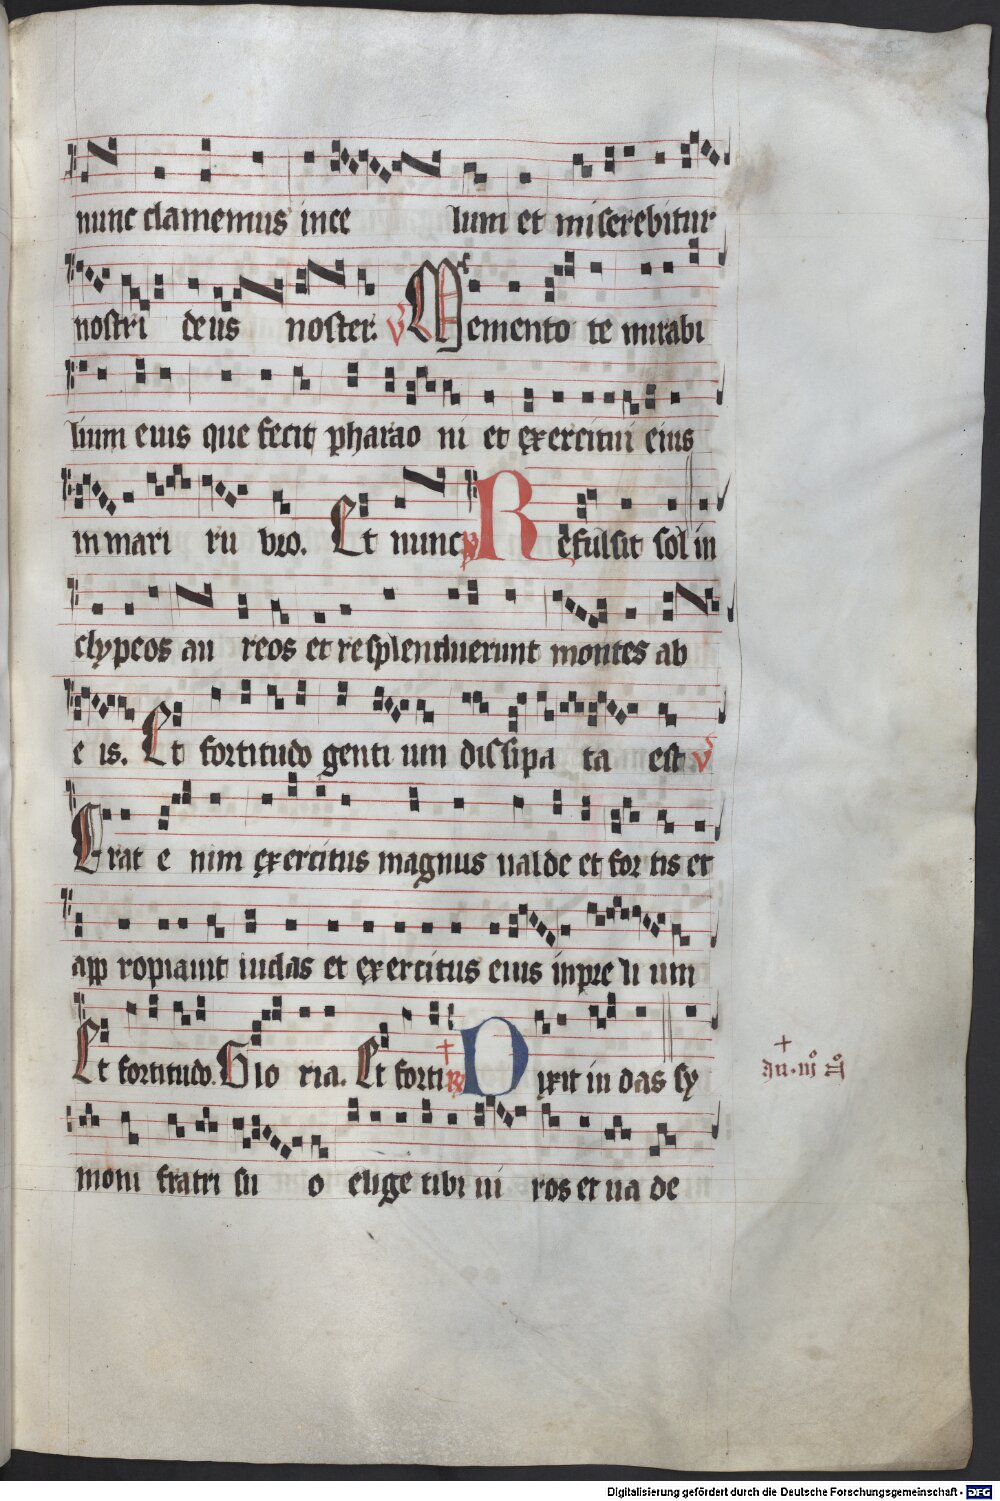 nunc clamemus in ce lum et miserebitur
nostri deus noster. V Memento te mirabi
lium eius que fecit pharao ni et exercitui eius
in mari ru bro. Et nunc R Refulsit sol in
clypeos au reos et resplenduerunt montes ab
e is. Et fortitudo genti um dissipa ta est V
Erat e nim exercitus magnus ualde et for tis et
app ropiauit iudas et exercitus eius in pre li um
Et fortitudo. Glo ria. Et forti R Dixit iudas sy
moni fratri su o elige tibi ui ros et ua de
Digitalisierung gefördert durch die Deutsche Forschungsgemeinschaft - DFG